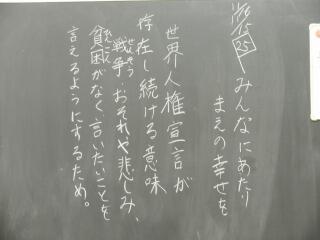 25
みんなにあたり
まえの幸せを
世界人権宣言が
存在し続ける意味
戦争、おそれや悲しみ、
せんそう
貧困がなく、言いたいことを
ひんこん
言えるようにするため。